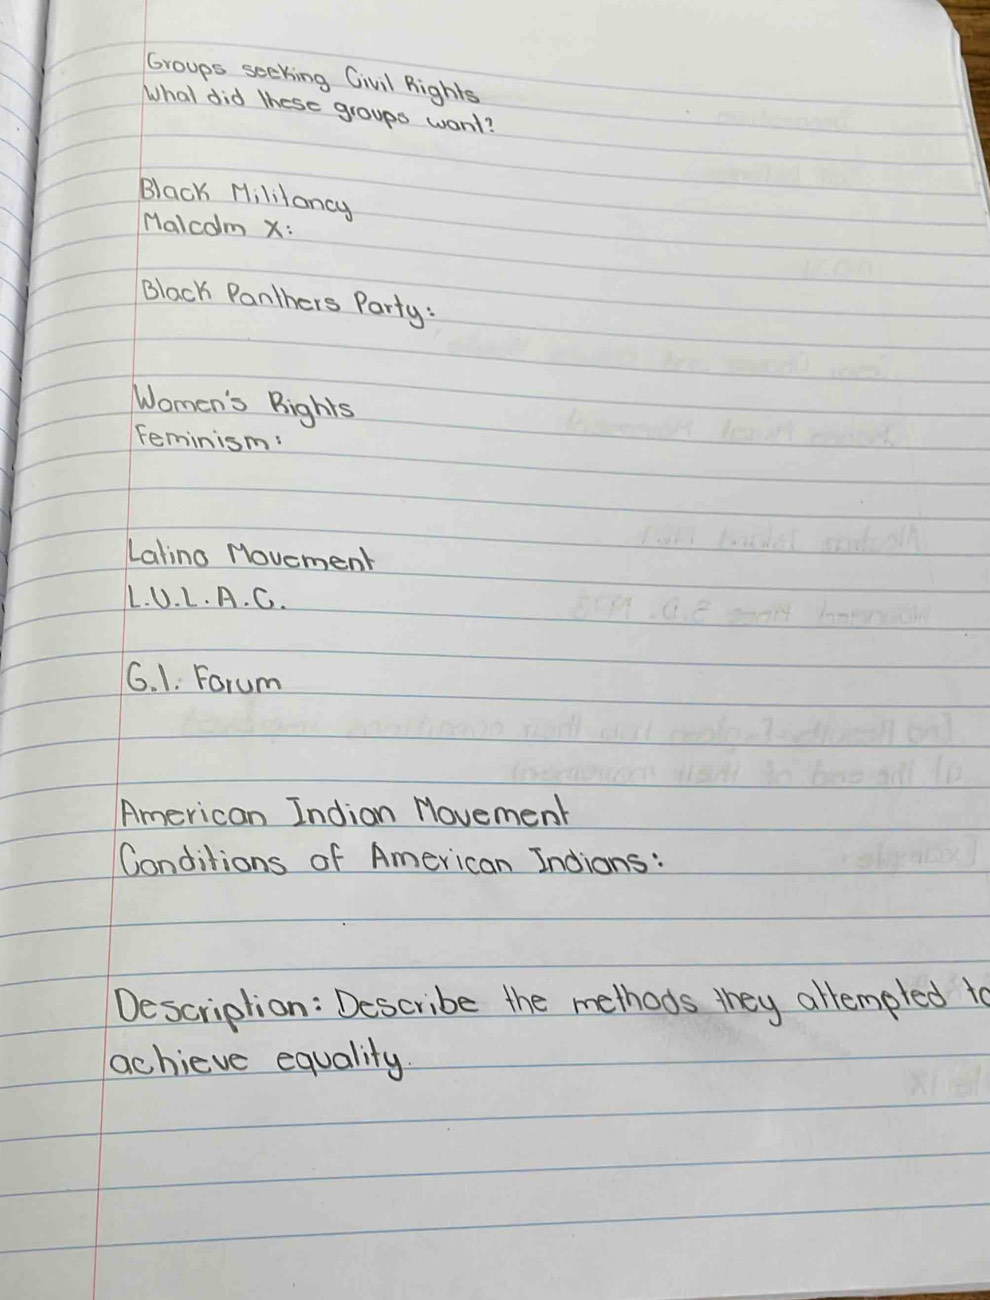 Groups seeking Civil Rights
What did these groups want?
Black Militancy
Malcolm X:
Black Panthers Party:
Women's Rights
Feminism:
Latino Movement
L.U.L.A.C.
G.I. Forum
American Indian Movement
Conditions of American Indians:
Description: Describe the methods they attempted to
achieve equality.